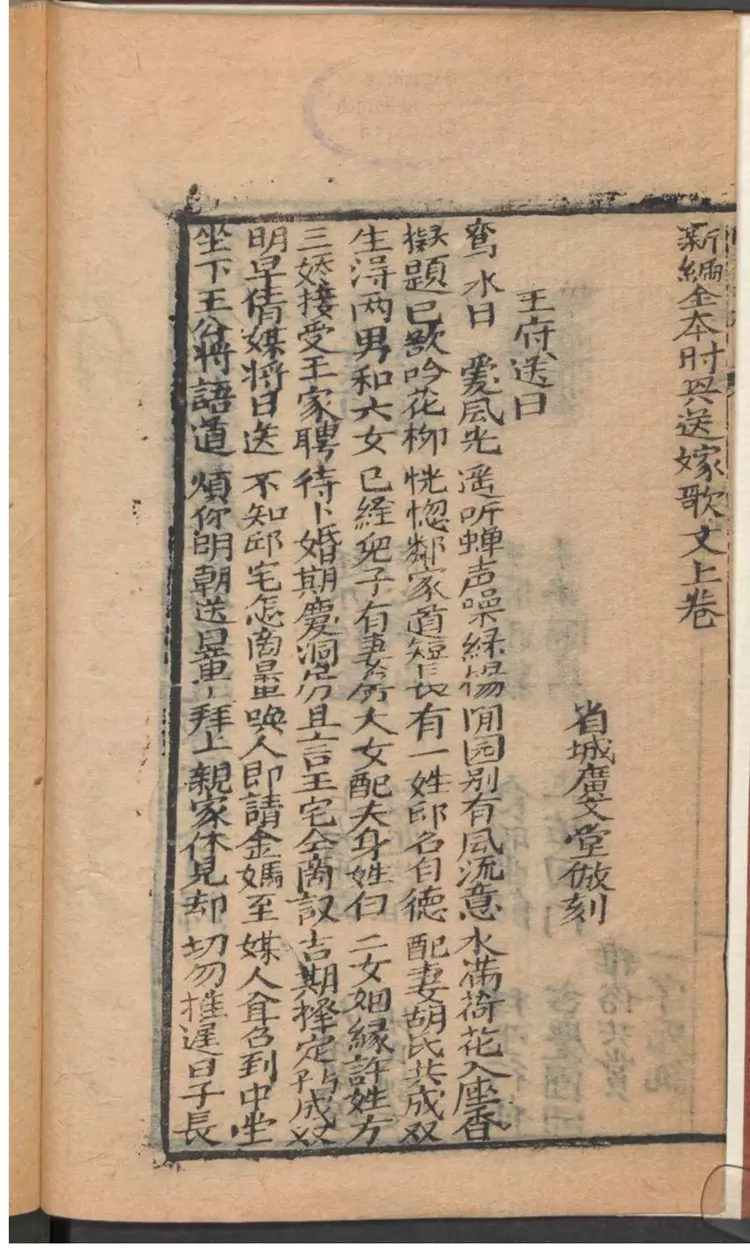 新編全本时兴送嫁歌文上卷
省城廣文堂倣刻
王府送日
鸾水日 爱風光 遥听蝉声噪緑楊 閒园别有風流意 水满荷花入座香
擬題已欲吟花柳 恍惚鄰家道短長 有一姓邱名自德 配妻胡氏共成双
生淂两男和六女 已経児子有妻房 大女配夫身姓 二女姻緣許姓方
三接受王家聘 待卜婚期慶洞房 且言王宅仝商议 吉期擇定成双
明早倩媒将日送 不知邱宅怎商量 喚人即請金媽至 媒人聞召到中堂
坐下王公将語道 煩你明朝送日 拜上親家休見却 切勿推遲日子長